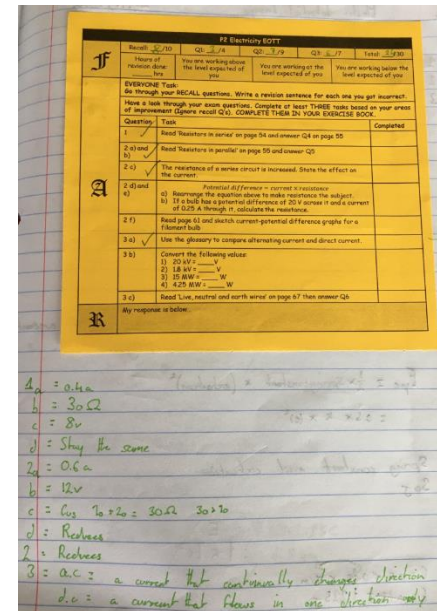 P2 Electricity EOTT
Recall: /10 Q1: /6 Q2: 7/9 Q3: /7 Total: /30
F
Hours of revision done: ____ hrs
You are working above the level expected of you
You are working at the level expected of you
You are working below the level expected of you
EVERYONE Task:
Go through your RECALL questions. Write a revision sentence for each one you got incorrect.
Have a look through your exam questions. Complete at least THREE tasks based on your areas
of improvement (Ignore recall Q's). COMPLETE THEM IN YOUR EXERCISE BOOK.
Question Task Completed
A
1 Read 'Resistors in series' on page 54 and answer Q4 on page 55
2 a) and b) Read 'Resistors in parallel' on page 55 and answer Q5
2 c) The resistance of a series circuit is increased. State the effect on
the current.
2 d) and e) Potential difference = current × resistance
a) Rearrange the equation above to make resistance the subject.
b) If a bulb has a potential difference of 20 V across it and a current
of 0.25 A through it, calculate the resistance.
2 f) Read page 61 and sketch current-potential difference graphs for a
filament bulb
3 a) Use the glossary to compare alternating current and direct current.
3 b) Convert the following values:
1) 20 kV = ____V
2) 1.8 kV = ____ V
3) 15 MW = ____ W
4) 4.25 MW = ____ W
3 c) Read 'Live, neutral and earth wires' on page 67 then answer Q6
R
My response is below:
1a = 0.4a
b = 30Ω
c = 8v
d = Stay the same
2a = 0.6a
b = 12v
c = 10+20 = 30Ω
d = Reduces
2 = Reduces
3 = a.c = a current that continually changes direction
d.c = a current that flows in one direction only